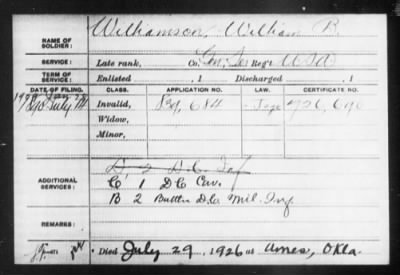 NAME OF SOLDIER: Williamson, William B.
SERVICE: Late rank, Co. Gen. Ser. Reg't USA
TERM OF SERVICE: Enlisted , 1 Discharged , 1
DATE OF FILING. CLASS. APPLICATION NO. LAW. CERTIFICATE NO.
1890 July Invalid, 684
Widow,
Minor,
D, 2 D.C. Inf
ADDITIONAL SERVICES: C, 1 D C Cav.
B 2 Battn D.C. Mil. Inf
REMARKS:
Died July 29, 1926 at Ames, Okla.